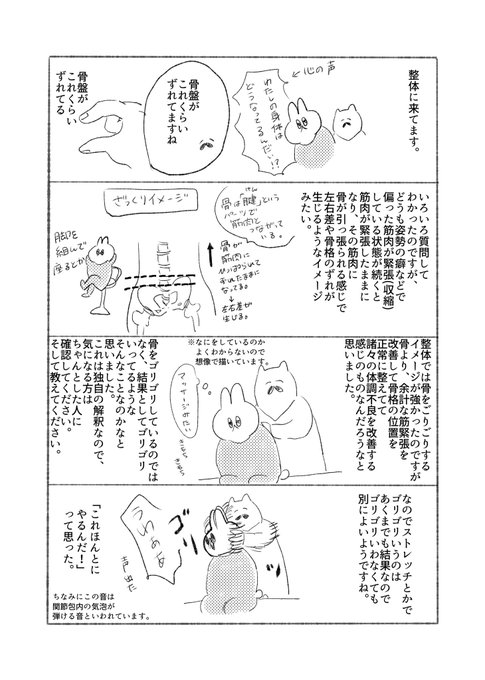 整体に来てます。
←心の声
わたしの身体は
どうなってるんだい!?
骨盤が
これくらい
ずれてますね
骨盤が
これくらい
ずれてる
いろいろ質問して
わかったのですが、
どうも姿勢の癖などで
偏った筋肉が緊張(収縮)
している状態が続くと
筋肉が緊張したままに
なり、その筋肉に
骨が引っ張られる感じで
左右差や骨格のずれが
生じるようなイメージ
みたい。
骨は「腱」という
パーツで
筋肉と
つながって
いる。
ざっくりイメージ
骨が
筋肉に
ひっぱられて
ずれたままに
なってる。
→左右差が
生じる。
脚を
組んで
座るとか
整体では骨をごりごりする
イメージが強かったのですが
骨より、余計な筋緊張を
改善して骨格の位置を
正常に整えてて
諸々の体調不良を改善する
感じのものなんだろうなと
思いました。
※なにをしているのか
よくわからないので
想像で描いています。
マッサージみたい
骨をゴリゴリしているのでは
なく、結果としてゴリゴリ
いってるような
そんなことなのかなと
思いました。
これは独自の解釈なので、
気になる方は
ちゃんとした人に
確認してください。
そして教えてください。
なのでストレッチとかで
ゴリゴリいうのは
あくまでも結果なので
ゴリゴリいわなくても
別によいようですね。
ゴリ
うわああ
「これほんとに
やるんだ!」
って思った。
ちなみにこの音は
関節包内の気泡が
弾ける音といわれています。